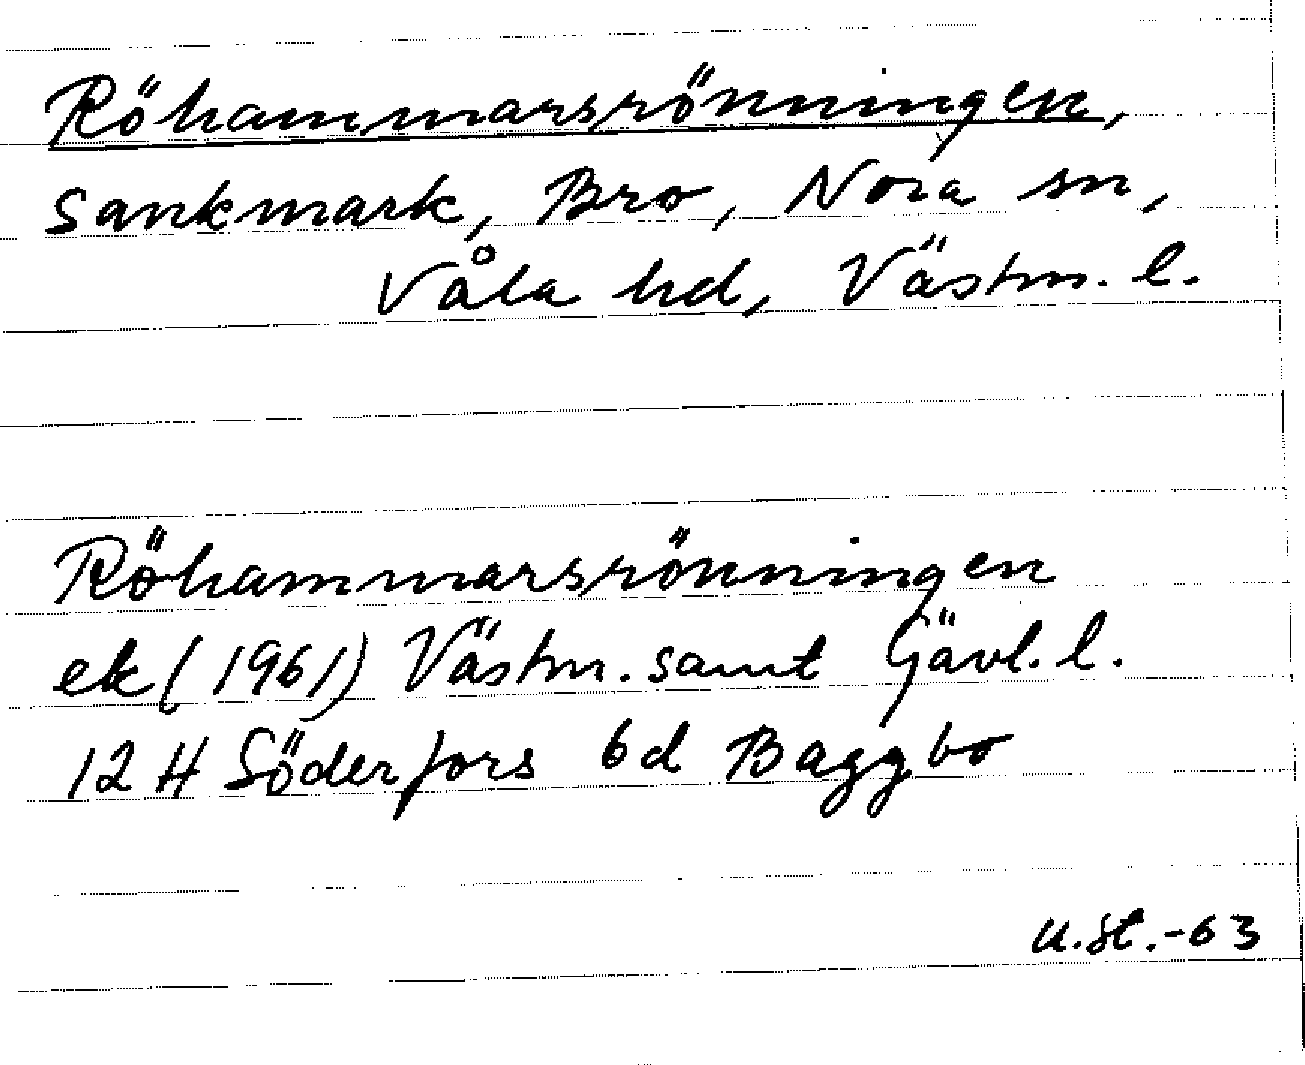 Röhammarsrönningen,
sankmark, Bro, Nora sn,
Våla hd, Västm. l.
Röhammarsrönningen
ek (1961) Västm. samt Gävl. l.
12 H Söderfors 6d Baggbo
u.st.-63